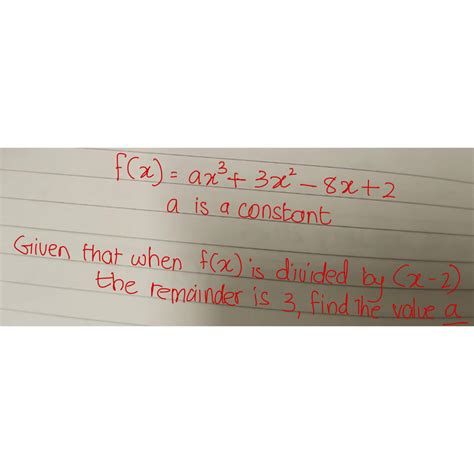 f(x) = ax³ + 3x² - 8x + 2
a is a constant
Given that when f(x) is divided by (x-2)
the remainder is 3, find the value a